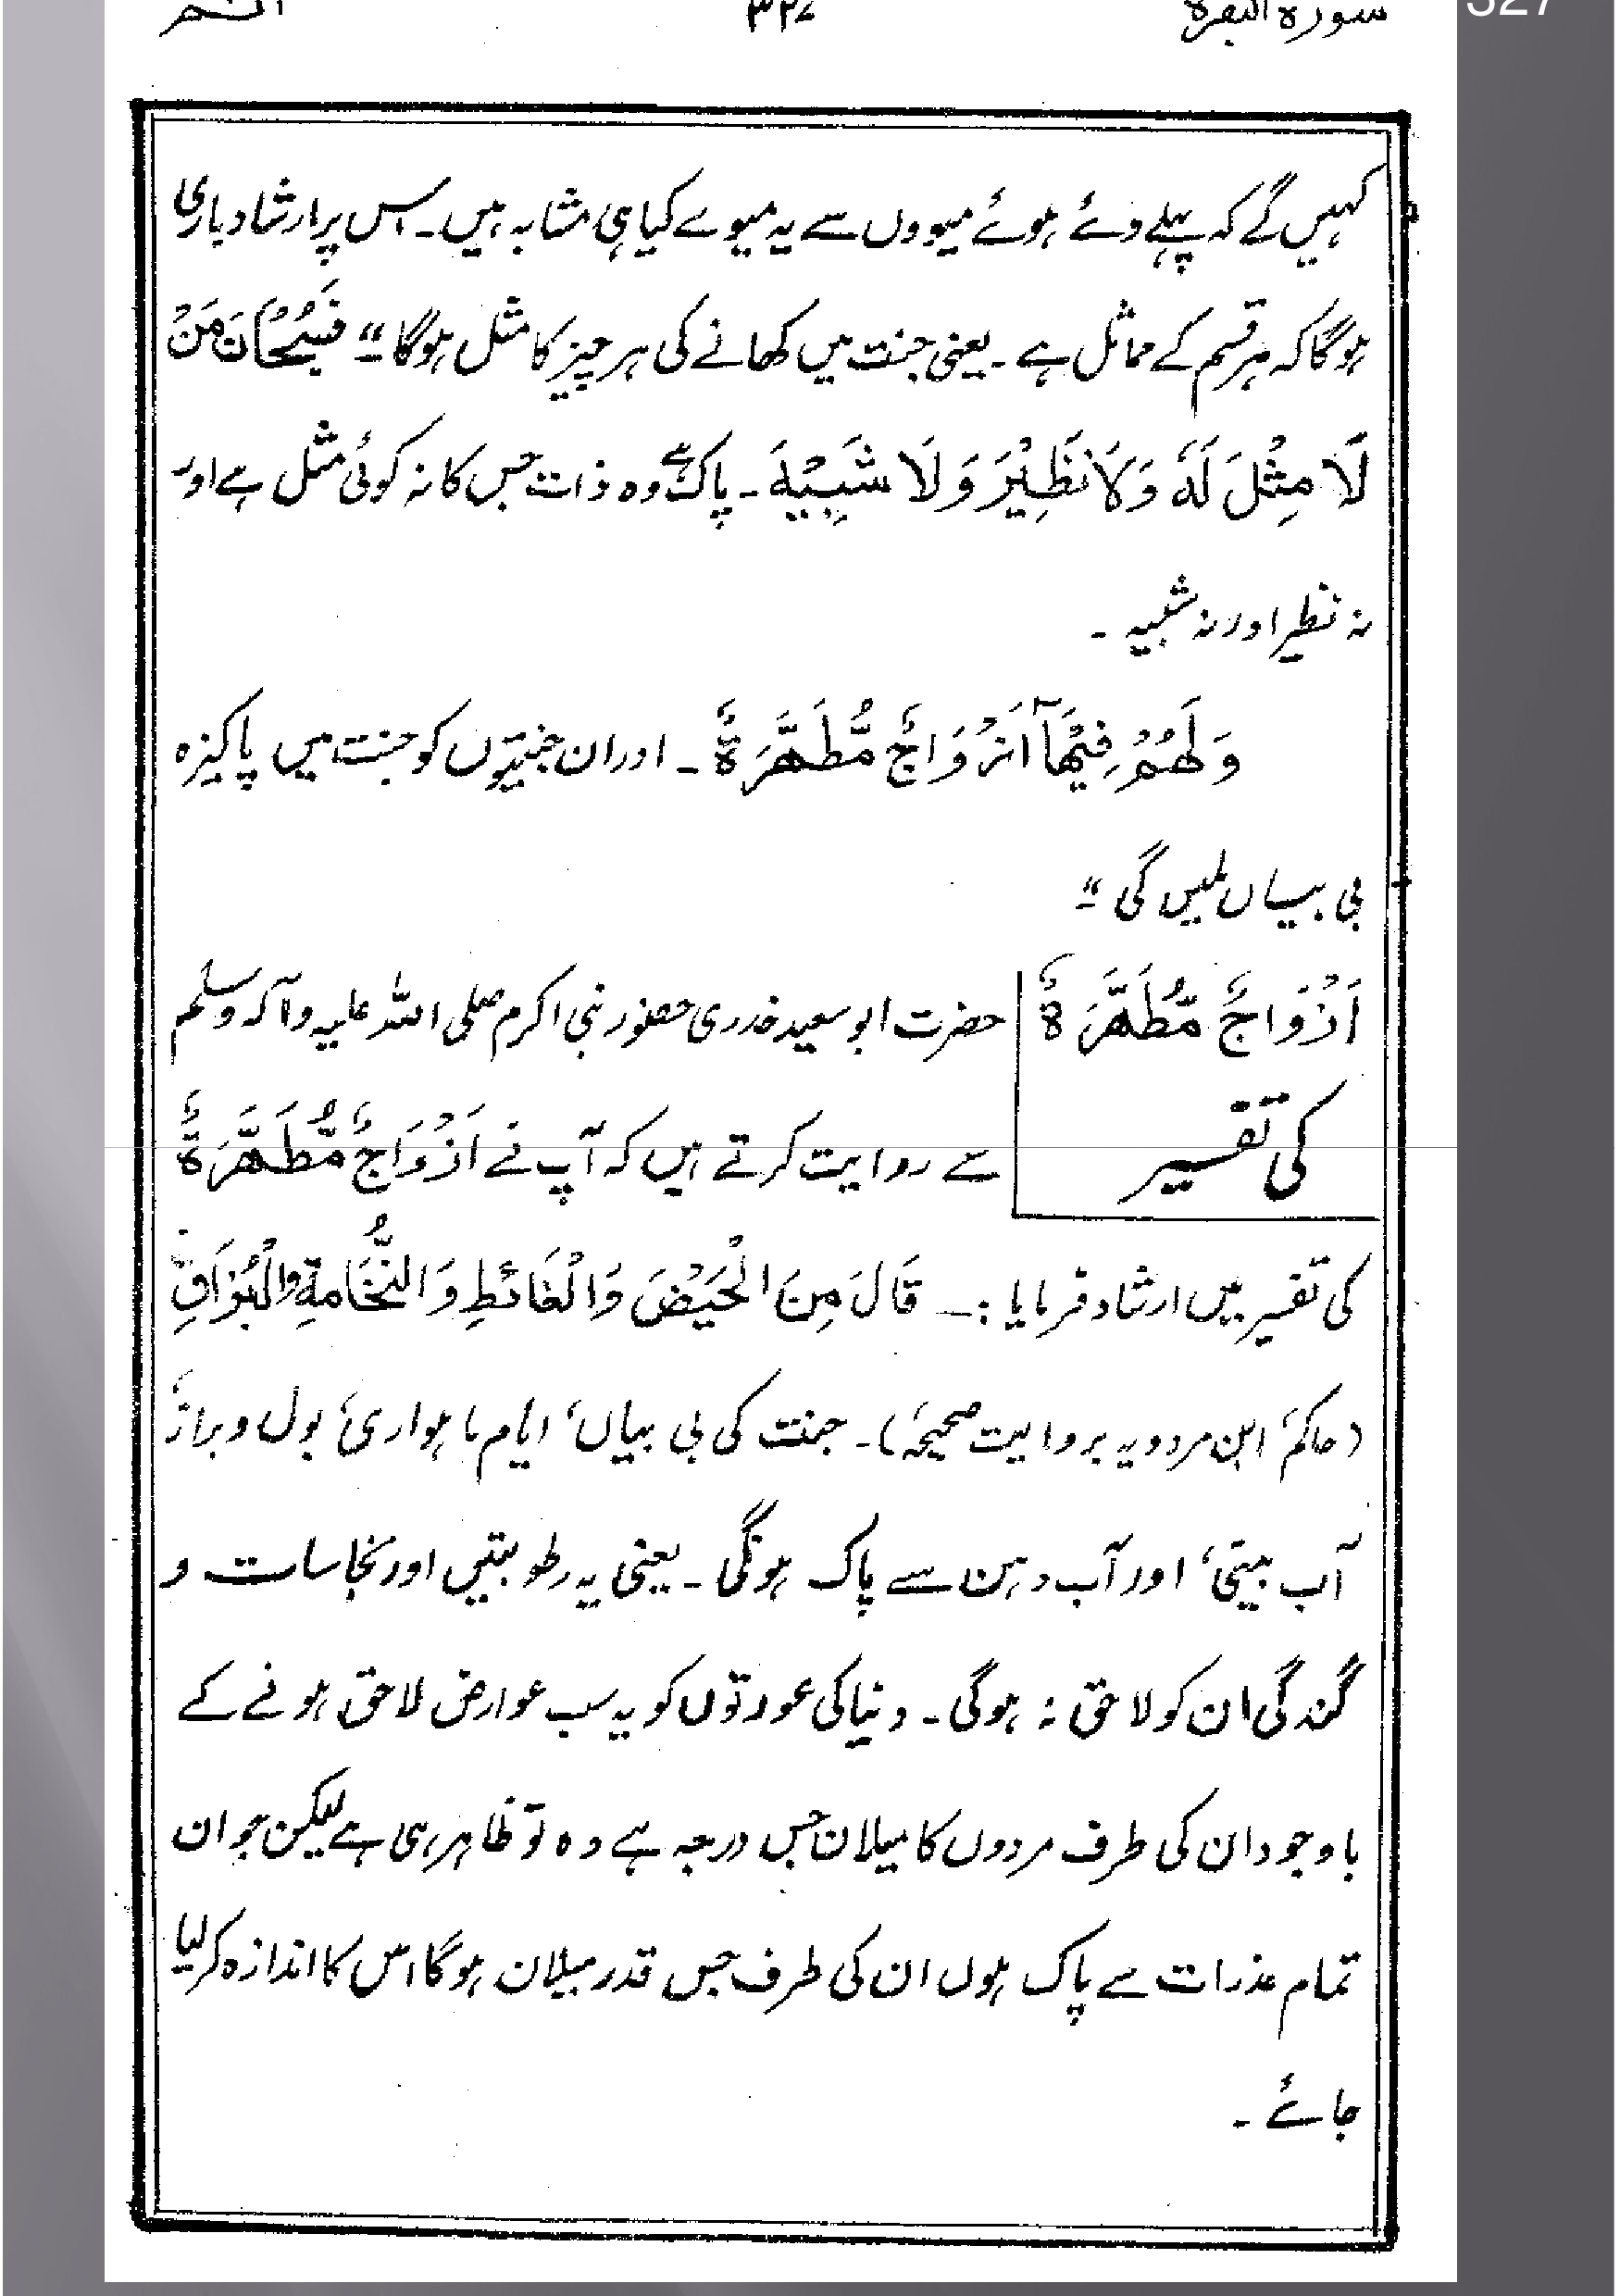 سورة البقرة ۳۲۷ الٓمٓ
327
کہیں گے کہ پہلے دئے ہوئے میووں سے یہ میوے کیا ہی مشابہ ہیں۔ اس پر ارشاد باری
ہوگا کہ ہر قسم کے مماثل ہے۔ یعنی جنت میں کھانے کی ہر چیز کا مثل ہوگا" فَسُبْحَانَ مَنْ
لَّا مِثْلَ لَهٗ وَلَا نَظِيْرَ وَلَا شَبِيْهَ۔ پاک ہے وہ ذات جس کا نہ کوئی مثل ہے اور
نہ نظیر اور نہ شبیہ۔
وَلَهُمْ فِيْهَآ اَزْوَاجٌ مُّطَهَّرَةٌ۔ اور ان جنتیوں کو جنت میں پاکیزہ
بی بیاں ملیں گی"
اَزْوَاجٌ مُّطَهَّرَةٌ حضرت ابو سعید خدری حضور نبی اکرم صلی اللہ علیہ وآلہ وسلم
کی تفسیر سے روایت کرتے ہیں کہ آپ نے اَزْوَاجٌ مُّطَهَّرَةٌ
کی تفسیر میں ارشاد فرمایا :۔ قَالَ مِنَ الْحَيْضَ وَالْغَائطِ وَالنُّخَامةِ وَالْبُزَاقِ
(حاکم، ابن مردویہ بروایت صحیحہ)۔ جنت کی بی بیاں، ایام ماہواری، بول و براز،
آب بینی، اور آب دہن سے پاک ہونگی۔ یعنی یہ رطوبتیں اور نجاسات و
گندگی ان کو لاحق نہ ہوگی۔ دنیا کی عورتوں کو یہ سب عوارض لاحق ہونے کے
باوجود ان کی طرف مردوں کا میلان جس درجہ ہے وہ تو ظاہر ہی ہے لیکن جو ان
تمام عذرات سے پاک ہوں ان کی طرف جس قدر میلان ہوگا اس کا اندازہ کر لیا
جائے۔